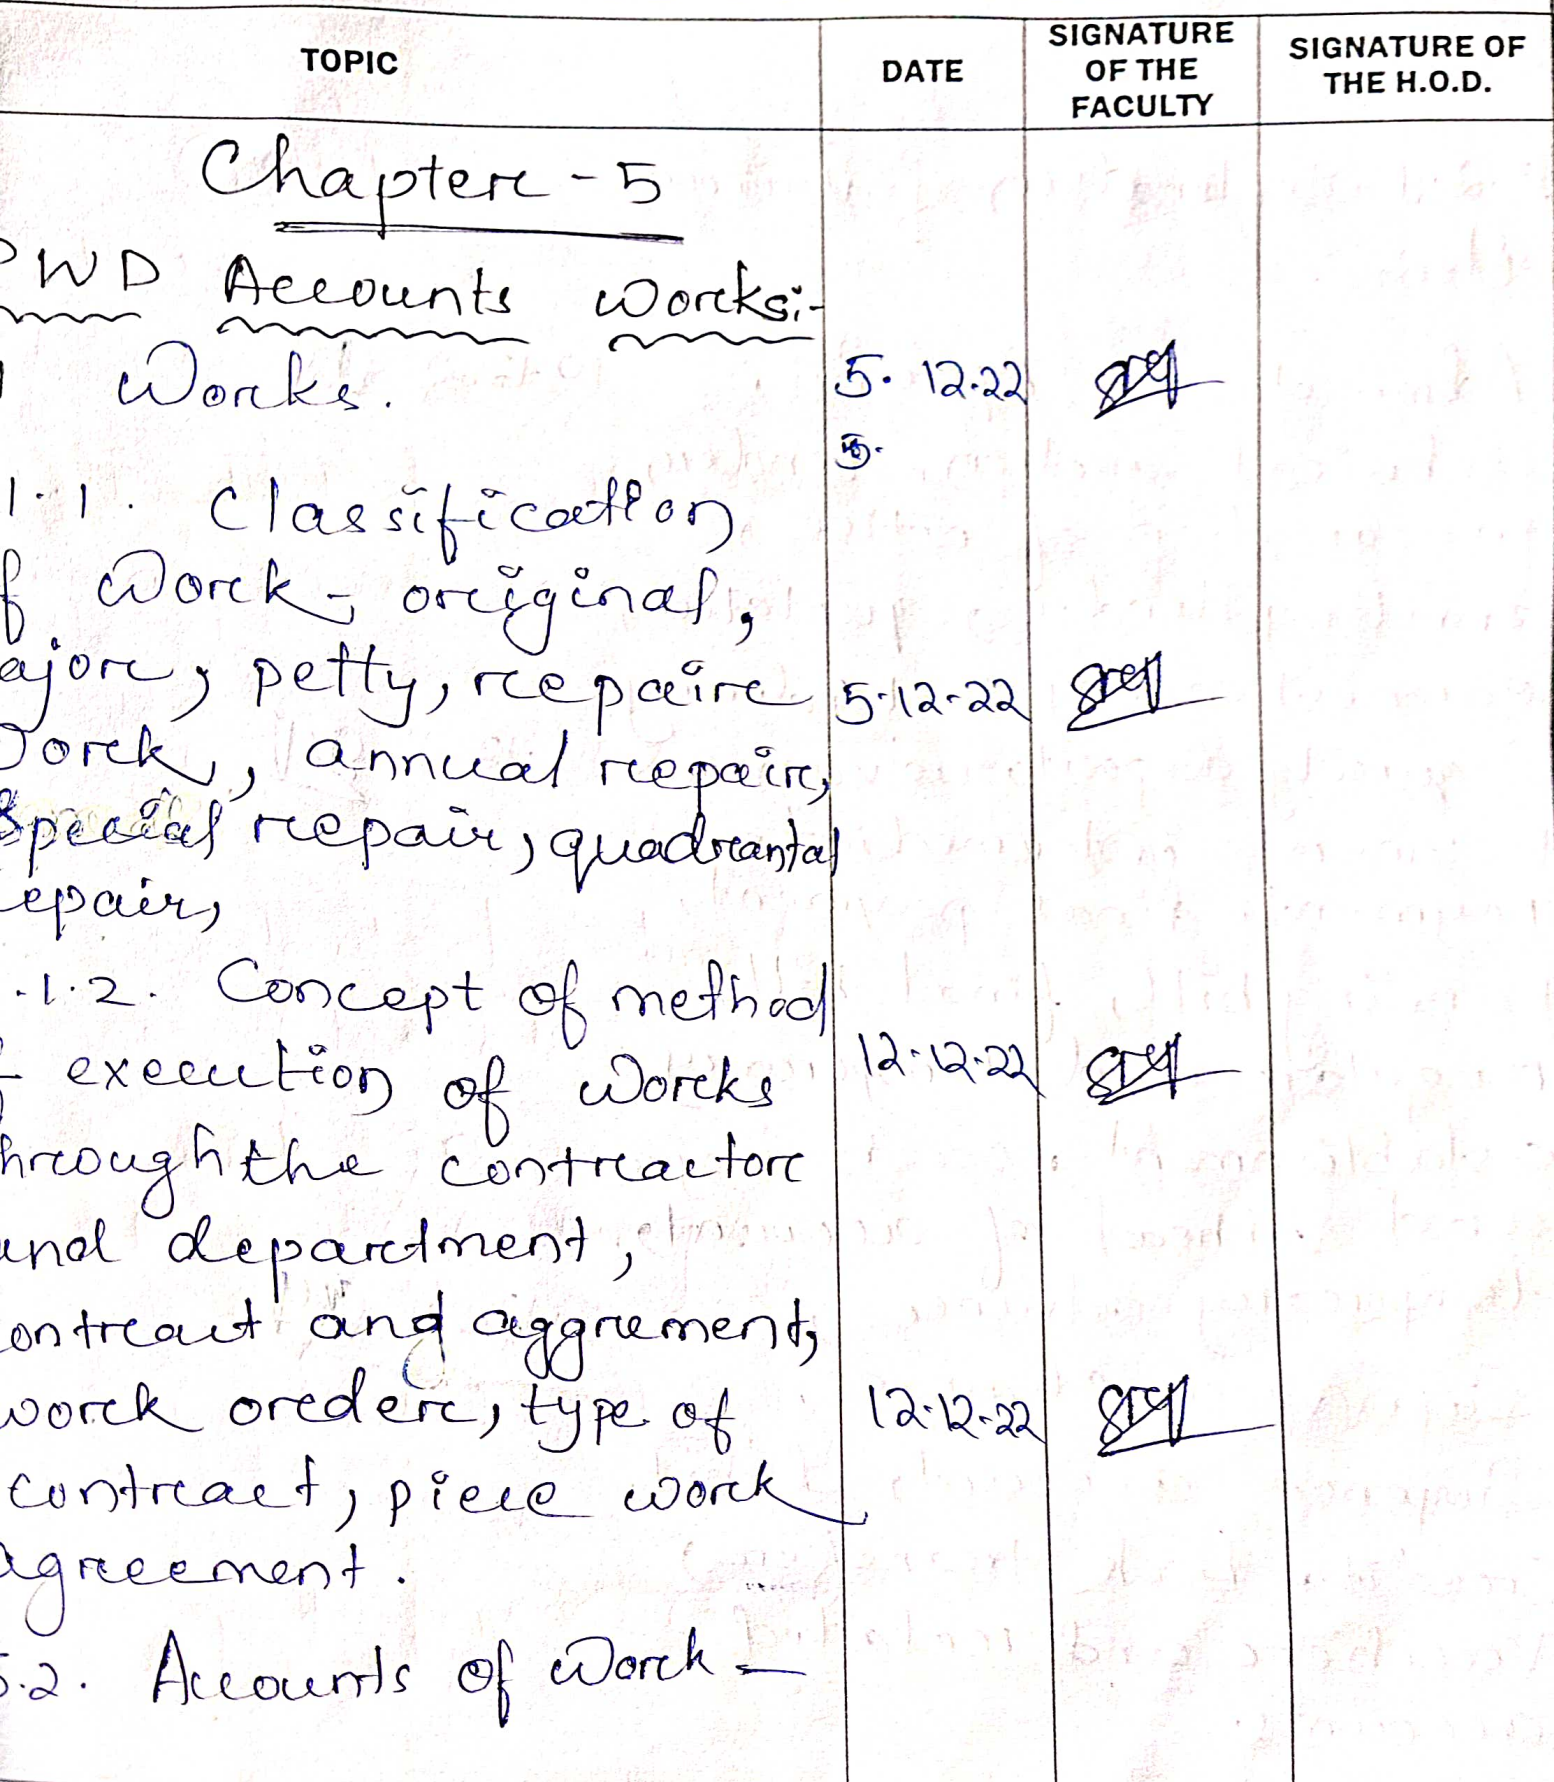 TOPIC
DATE
SIGNATURE OF THE FACULTY
SIGNATURE OF THE H.O.D.
Chapter - 5
PWD Accounts Works:-
Works. 5.12.22
5.
1.1. Classification
f Work-, original,
ajor, petty, repaire 5.12.22
Work, annual repair,
Special repair, quadrantal
epair,
.1.2. Concept of method
f execution of Works 12.12.22
hrough the contractor
and department,
ontract and aggrement,
work order, type of 12.12.22
contract, piece work
agreement.
5.2. Accounts of Work -